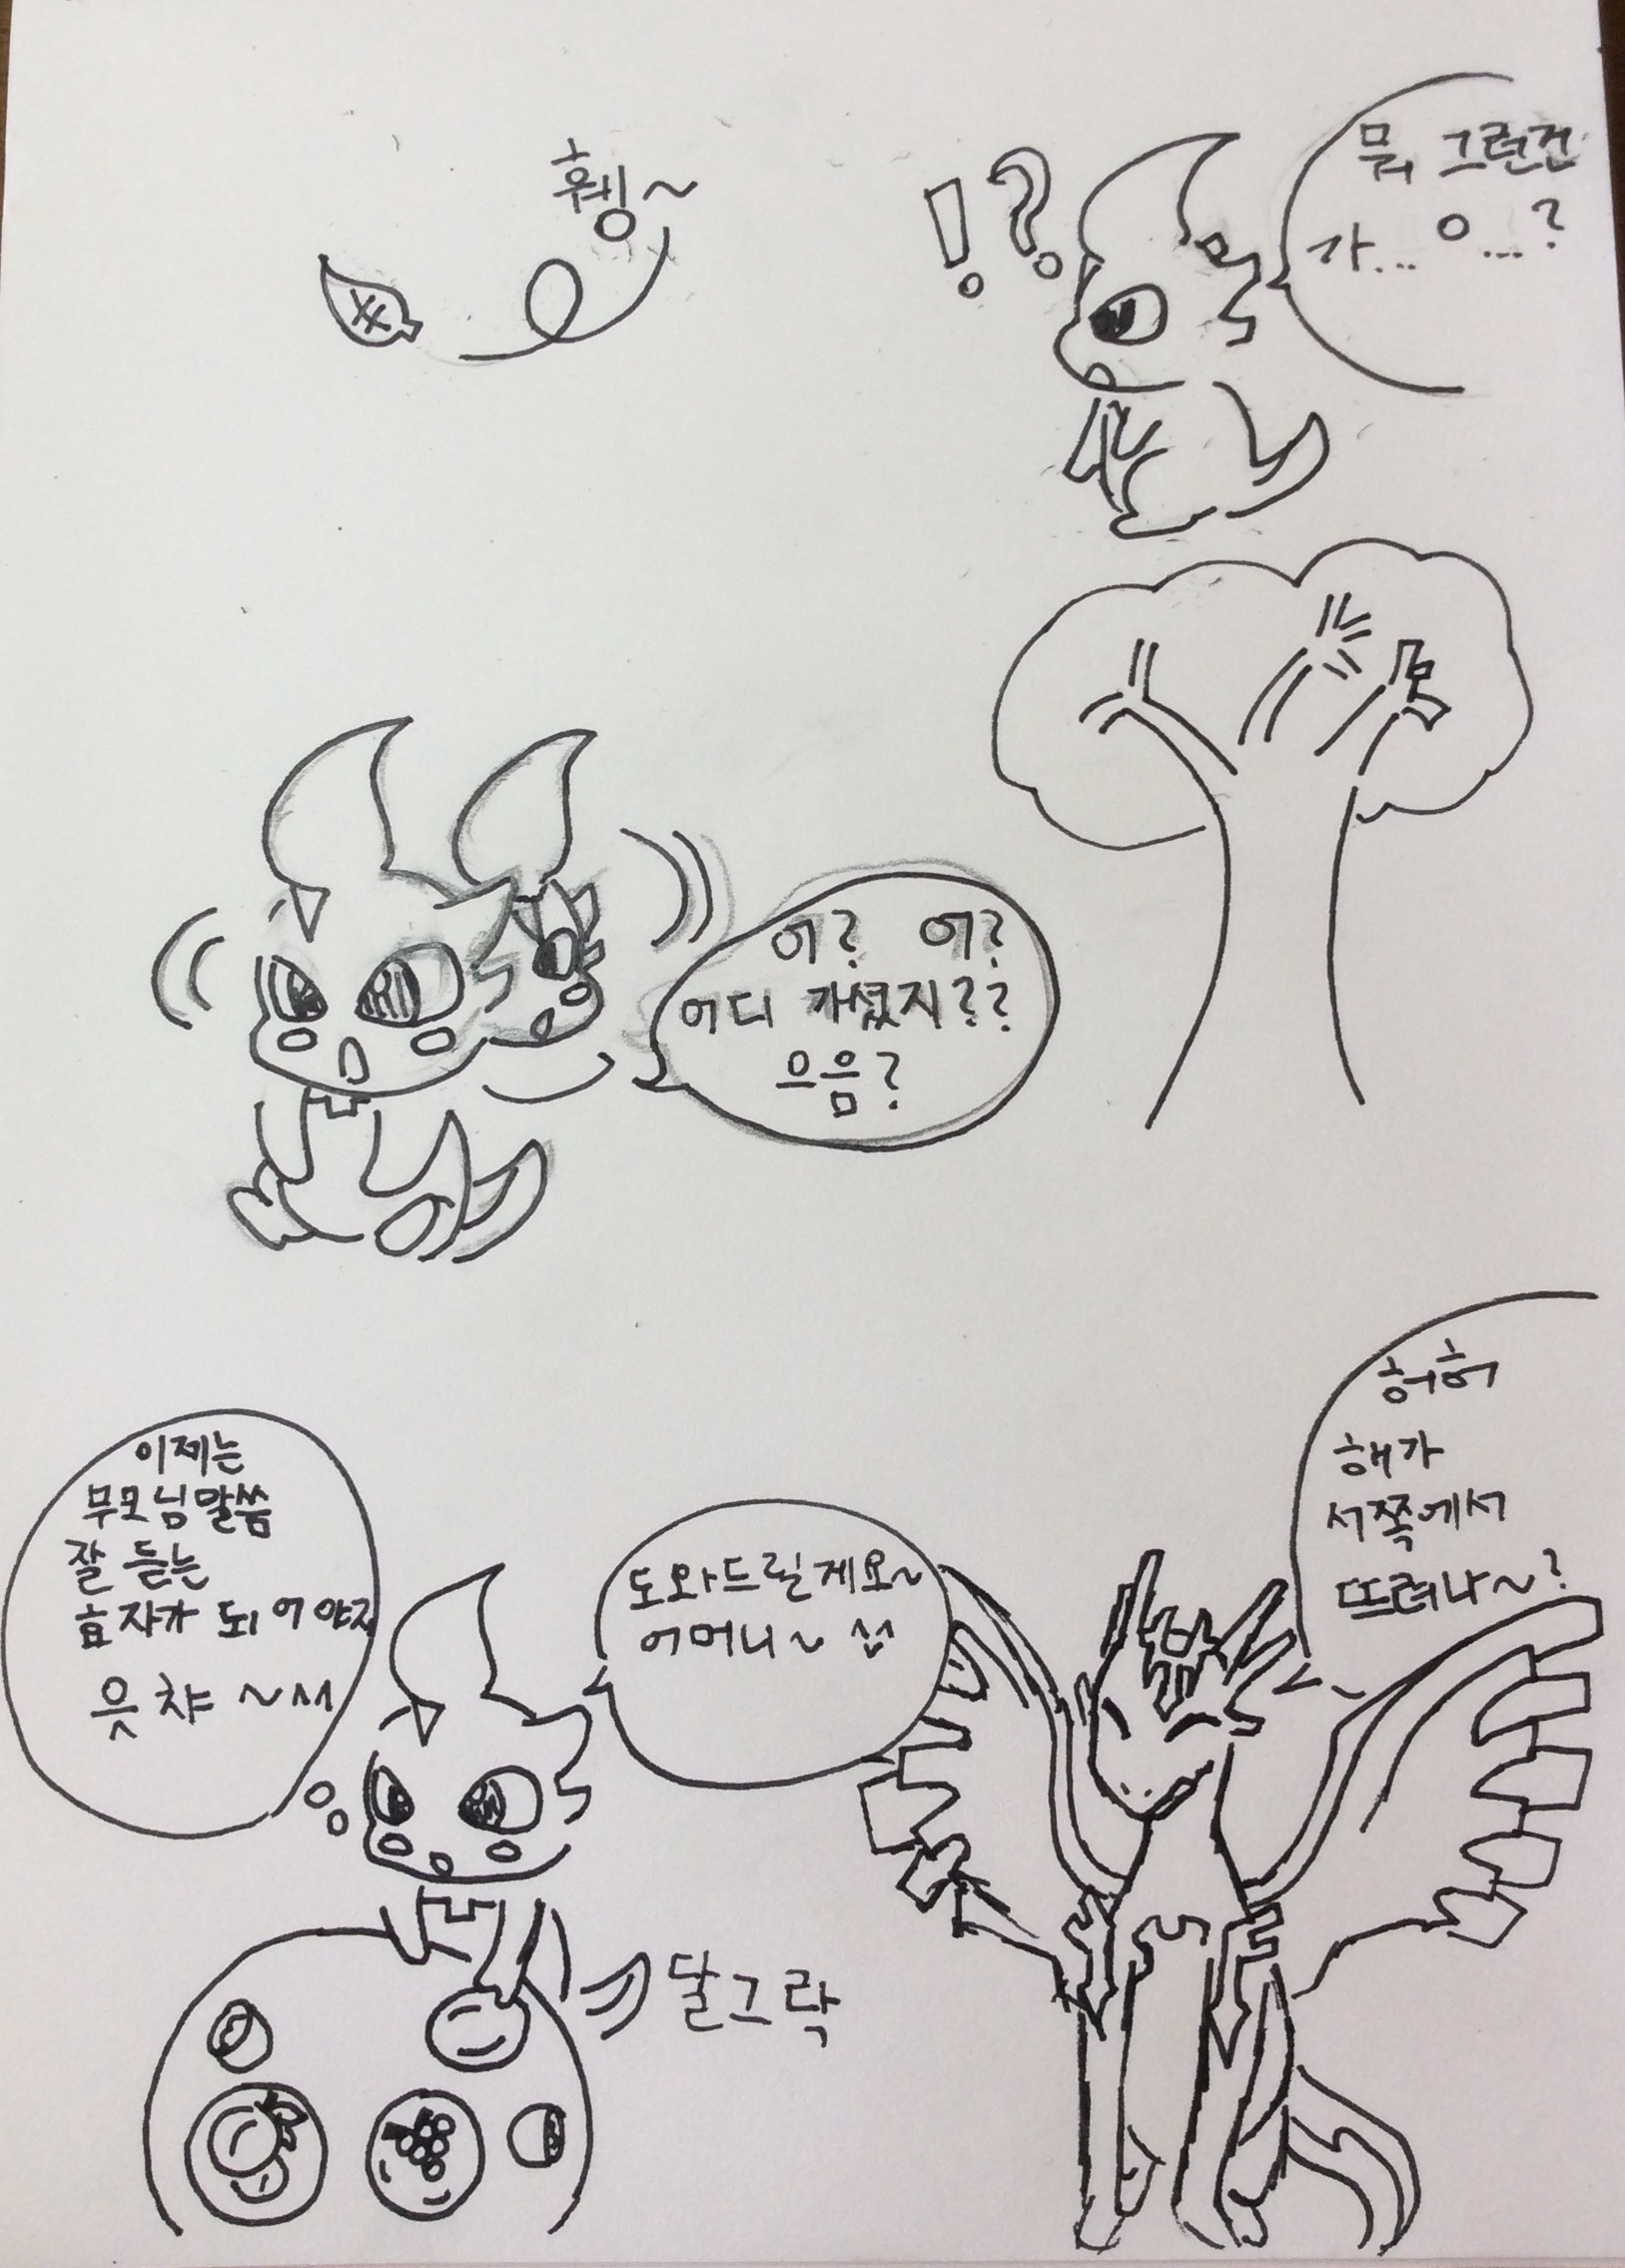 휑~
!?
뭐 그런건
가... ㅇ...?
어? 어?
어디 가셨지??
으음?
이제는
부모님말씀
잘 듣는
효자가 되어야지
읏챠~^^
도와드릴게요~
어머니~ ^^
허허
해가
서쪽에서
뜨려나~?
달그락